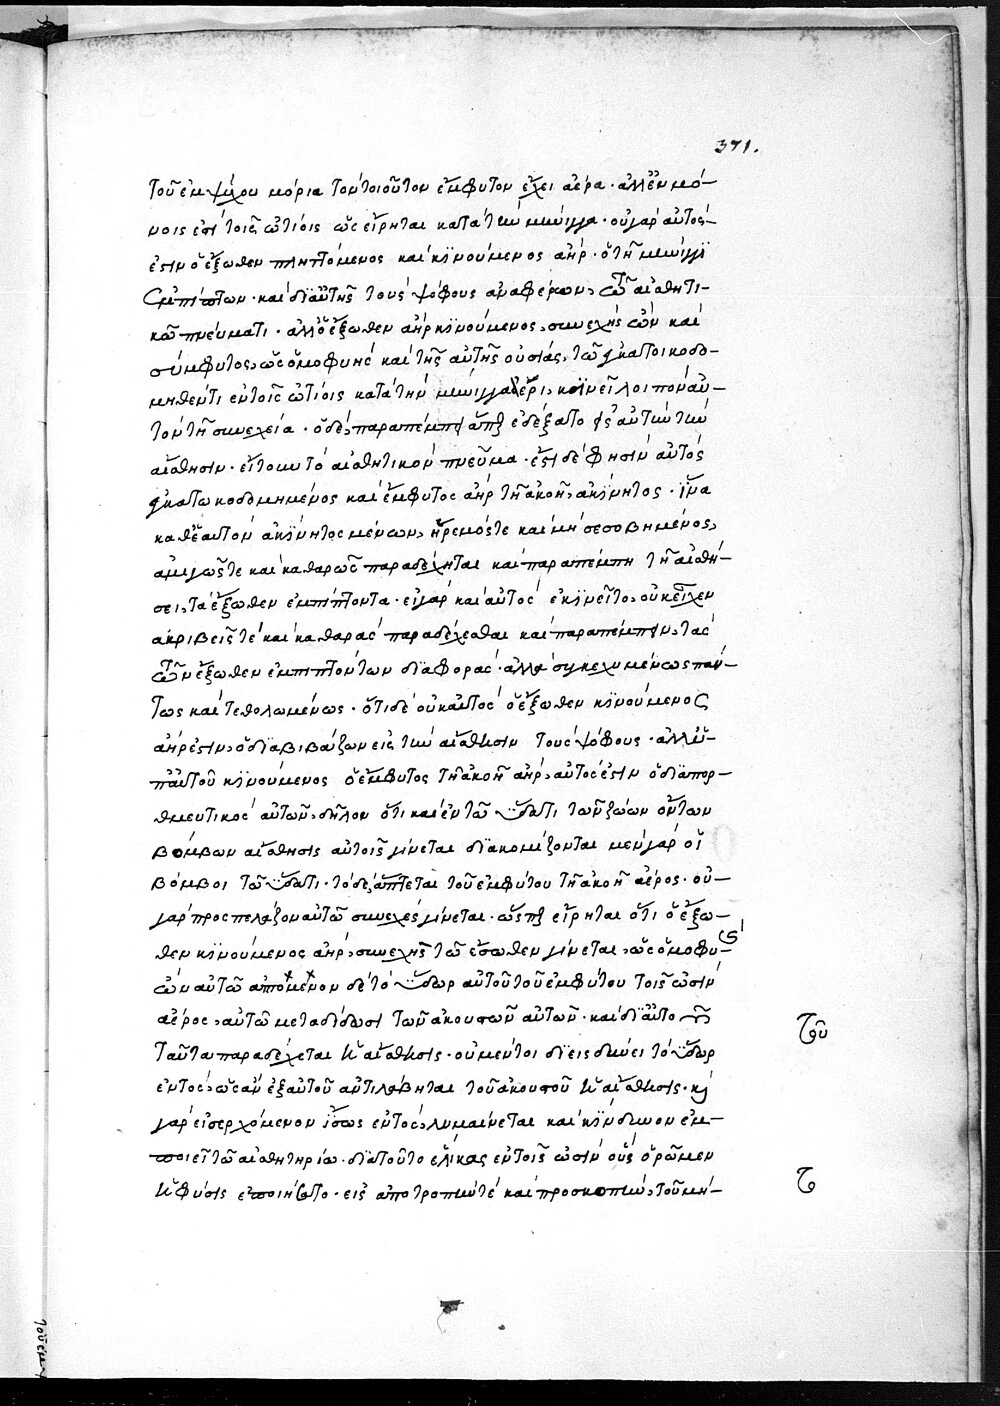 371.
τοῦ ἐμψύχου μόρια τὸν τοιοῦτον ἔμφυτον ἔχει ἀέρα· ἀλλ' ἐν μό-
νοις ἐστὶ τοῖς ὠτίοις ὡς εἴρηται κατὰ τὴν μήνιγγα· οὐ γὰρ αὐτός
ἐστιν ὁ ἔξωθεν πληττόμενος καὶ κινούμενος ἀὴρ· ὁ τῇ μήνιγγι
ἐμπίπτων· καὶ δι' αὐτῆς τοὺς ψόφους ἀναφέρων, τῶ αἰσθητι-
κῶ πνεύματι· ἀλλ' ὁ ἔξωθεν ἀὴρ κινούμενος, συνεχὴς ὢν καὶ
σύμφυτος, ὡς ὁμοφυὴς καὶ τῆς αὐτῆς οὐσίας, τῶ ἐγκατοικοδο-
μηθέντι ἐν τοῖς ὠτίοις κατὰ τὴν μήνιγγα ἀέρι, κινεῖ λοιπὸν αὐ-
τὸν τῇ συνεχεία· ὁ δὲ, παραπέμπει ἅπερ ἐδέξατο εἰς αὐτὴν τὴν
αἴσθησιν· εἴτουν τὸ αἰσθητικὸν πνεῦμα· ἔστι δέ φησιν αὐτὸς
ἐγκατωκοδομημένος καὶ ἔμφυτος ἀὴρ τῇ ἀκοῇ, ἀκίνητος· ἵνα
καθ' ἑαυτὸν ἀκίνητος μένων, ἠρεμός τε καὶ μὴ σεσοβημένος,
ἀμιγῶς τε καὶ καθαρῶς παραδέχηται καὶ παραπέμπη τῇ αἰσθή-
σει, τὰ ἔξωθεν ἐμπίπτοντα· εἰ γὰρ καὶ αὐτὸς ἐκινεῖτο, οὐκ εἶχεν
ἀκριβεῖς τὲ καὶ καθαρὰς παραδέχεσθαι καὶ παραπέμπειν, τὰς
τῶν ἔξωθεν ἐμπιπτόντων διαφοράς· ἀλλὰ συγκεχυμένως πάν-
τως καὶ τεθολωμένως· ὅτι δὲ οὐκ αὐτὸς ὁ ἔξωθεν κινούμενος
ἀήρ ἐστιν, ὁ διαβιβάζων εἰς τὴν αἴσθησιν τοὺς ψόφους· ἀλλ' ὑ-
π' αὐτοῦ κινούμενος ὁ ἔμφυτος τῇ ἀκοῇ ἀὴρ, αὐτός ἐστιν ὁ διαπορ-
θμευτικὸς αὐτῶν, δῆλον ὅτι καὶ ἐν τῶ ὕδατι τῶν ζώων ὄντων
βόμβων αἴσθησις αὐτοῖς γίνεται διακομίζονται μὲν γὰρ οἱ
βόμβοι τῶ ὕδατι· τὸ δὲ, ἅπτεται τοῦ ἐμφύτου τῇ ἀκοῇ ἀέρος· οὐ-
γὰρ προσπελάζον αὐτῶ συνεχὲς γίνεται· ὥσπερ εἴρηται ὅτι ὁ ἔξω-
θεν κινούμενος ἀὴρ, συνεχὴς τῶ ἔσωθεν γίνεται, ὡς ὁμοφυ-
ὢν αὐτῶ ἁπτόμενον δὲ τὸ ὕδωρ αὐτοῦ τοῦ ἐμφύτου τοῖς ὠσὶν
ἀέρος, αὐτῶ μεταδίδωσι τῶν ἀκουστῶν αὐτῶν· καὶ δι' αὐτο
ταῦτα παραδέχεται ἡ αἴσθησις· οὐ μέντοι διεισδύνει τὸ ὕδωρ
ἐντός, ὡς ἂν ἐξ αὐτοῦ ἀντιλάβηται τοῦ ἀκουστοῦ ἡ αἴσθησις· καὶ
γὰρ εἰσερχόμενον ἴσως ἐντός, λυμαίνεται καὶ κίνδυνον ἐμ-
ποιεῖ τῶ αἰσθητηρίω· διὰ τοῦτο ἕλικας ἐν τοῖς ὠσὶν οὓς ὁρῶμεν
ἡ φύσις ἐποιήσατο· εἰς ἀποτροπήν τε καὶ προσκοπὴν, τοῦ μή-